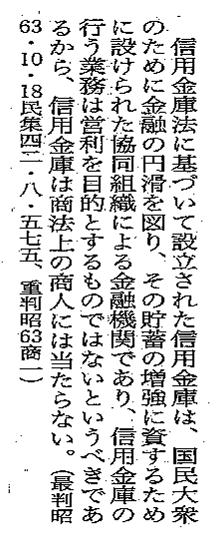 信用金庫法に基づいて設立された信用金庫は、国民大衆
のために金融の円滑を図り、その貯蓄の増強に資するため
に設けられた協同組織による金融機関であり、信用金庫の
行う業務は営利を目的とするものではないというべきであ
るから、信用金庫は商法上の商人には当たらない。（最判昭
63・10・18民集四二・八・五七五、重判昭63商一）